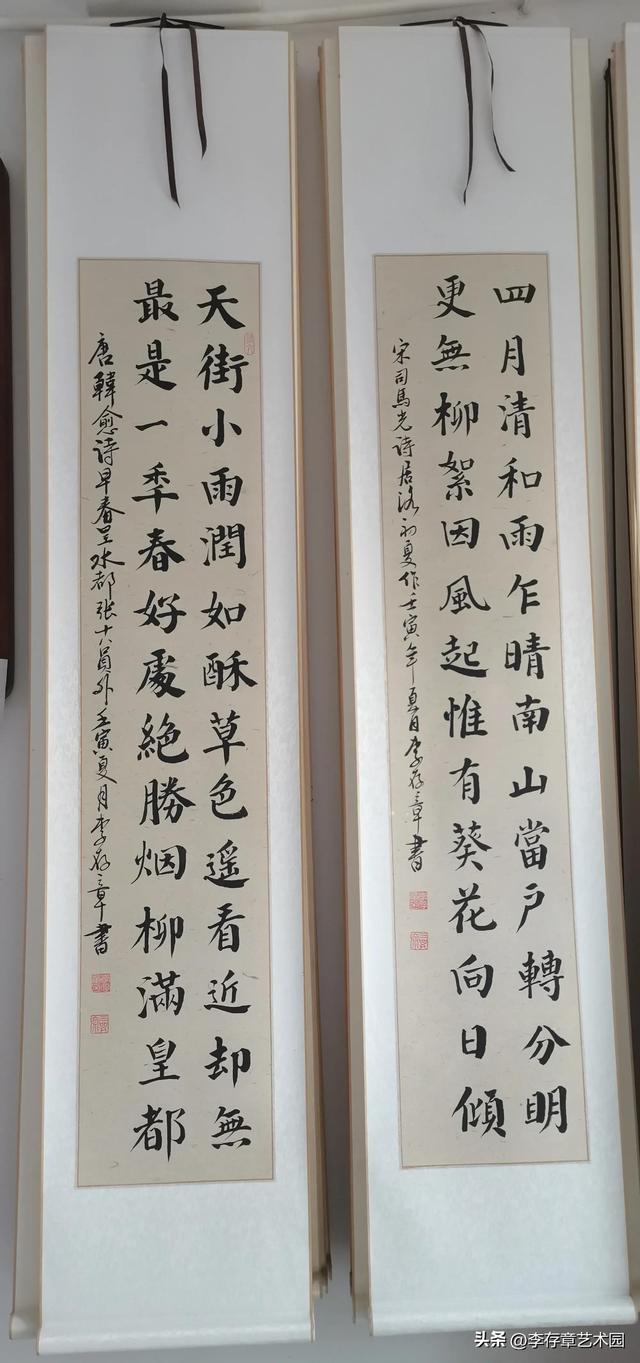 四月清和雨乍晴南山當户轉分明
更無柳絮因風起惟有葵花向日傾
宋司馬光诗居洛初夏作壬寅年夏月李存章書
天街小雨潤如酥草色遥看近却無
最是一季春好處絶勝烟柳滿皇都
唐韓愈诗早春呈水都张十八員外壬寅夏月李存章書
头条 @李存章艺术园